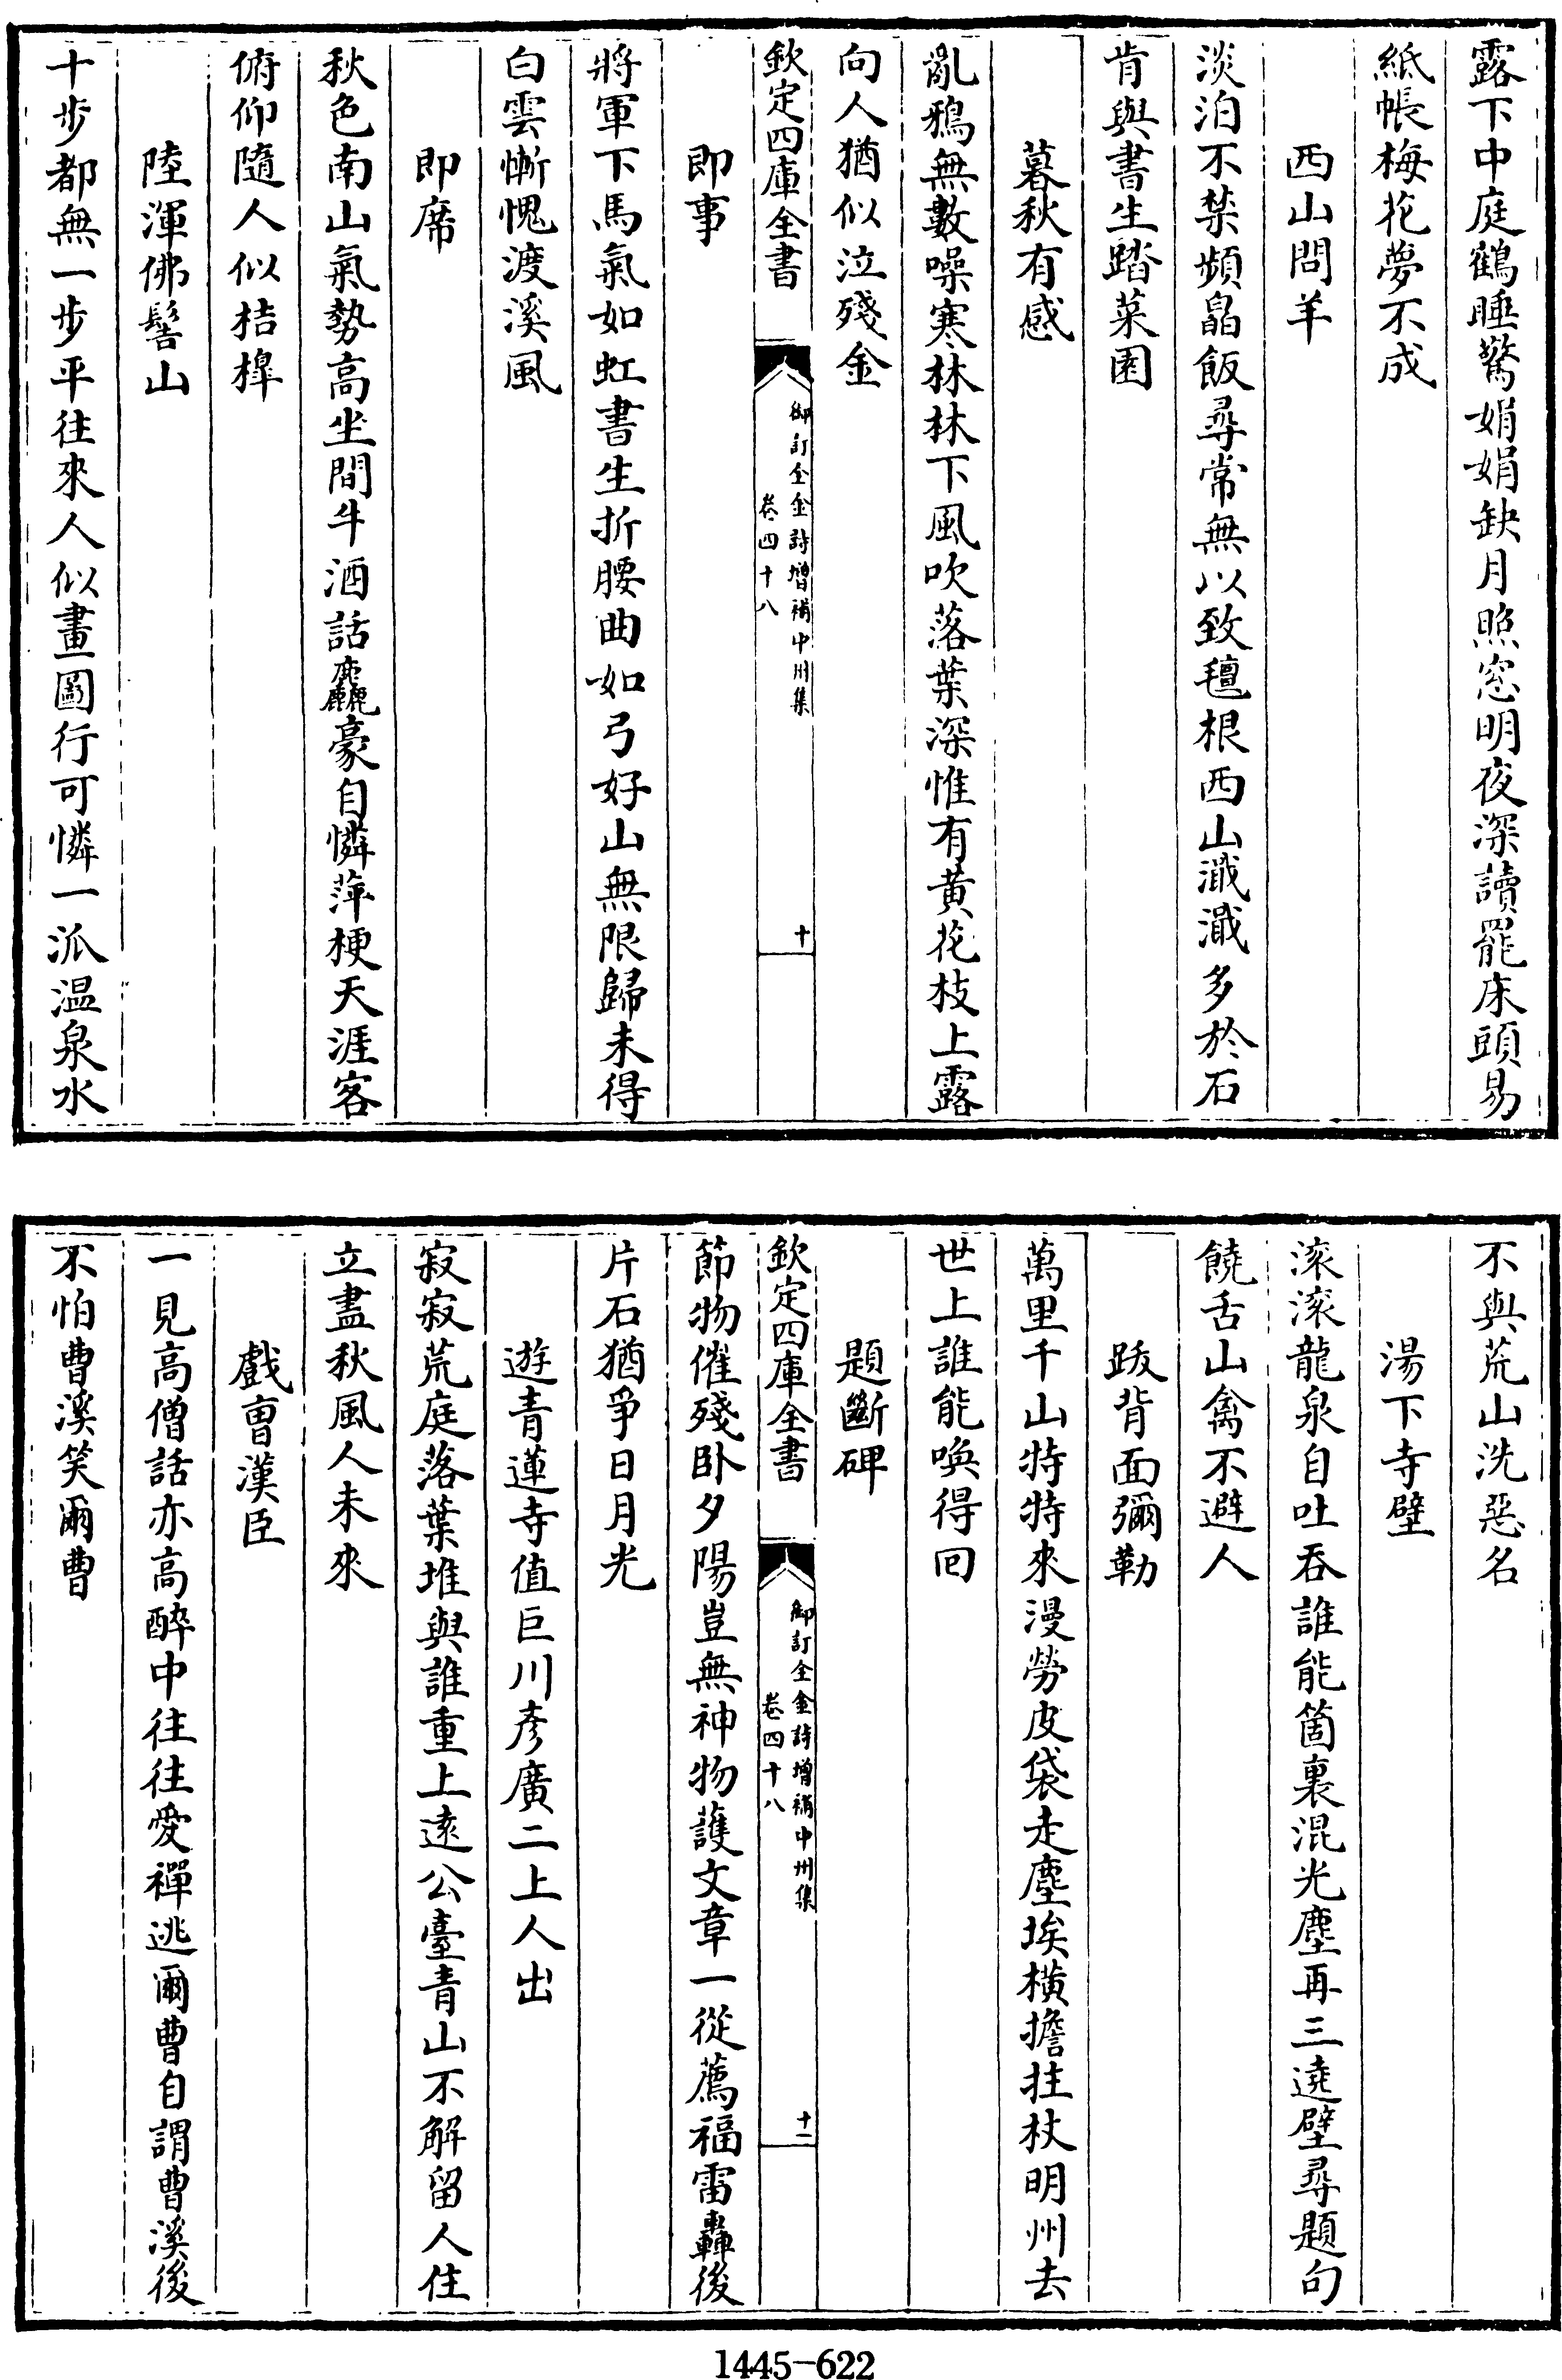 露下中庭鶴睡驚娟娟缺月照窓明夜深讀罷床頭易
紙帳梅花夢不成
西山問羊
淡泊不禁頻皛飯尋常無以致氊根西山濈濈多於石
肯與書生踏菜園
暮秋有感
亂鴉無數噪寒林林下風吹落葉深惟有黄花枝上露
向人猶似泣殘金
欽定四庫全書
御訂全金詩增補中州集
卷四十八
十
即事
將軍下馬氣如虹書生折腰曲如弓好山無限歸未得
白雲慚愧渡溪風
即席
秋色南山氣勢高坐間牛酒話麤豪自憐萍梗天涯客
俯仰隨人似桔橰
陸渾佛髻山
十步都無一步平往來人似畫圖行可憐一派温泉水
不與荒山洗惡名
湯下寺壁
滚滚龍泉自吐吞誰能箇裏混光塵再三遶壁尋題句
饒舌山禽不避人
跋背面彌勒
萬里千山特特來漫勞皮袋走塵埃橫擔拄杖明州去
世上誰能喚得回
題斷碑
欽定四庫全書
御訂全金詩增補中州集
卷四十八
十一
節物催殘卧夕陽豈無神物護文章一從薦福雷轟後
片石猶爭日月光
遊青蓮寺值巨川彥廣二上人出
寂寂荒庭落葉堆與誰重上遠公臺青山不解留人住
立盡秋風人未來
戲曺漢臣
一見高僧話亦高醉中往往愛禪逃爾曹自謂曹溪後
不怕曹溪笑爾曹
1445-622